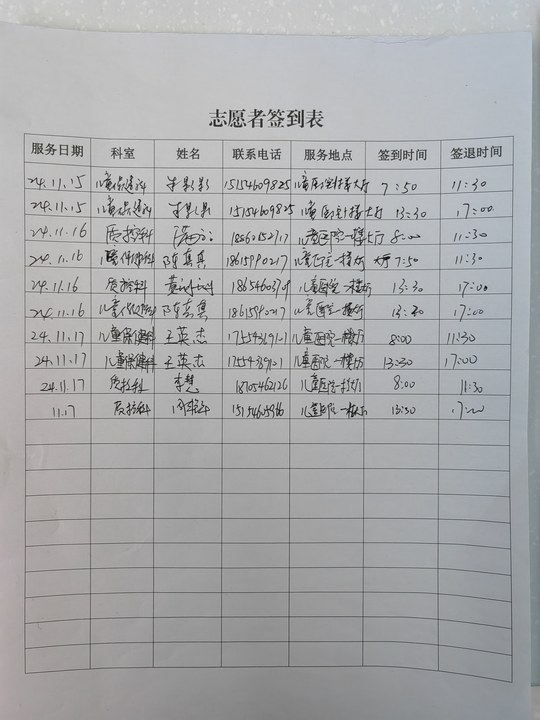 志愿者签到表
服务日期 科室 姓名 联系电话 服务地点 签到时间 签退时间
24.11.15 儿童保健科 15154609825 儿童医院一楼大厅 7:50 11:30
24.11.15 儿童保健科 15154609825 儿童医院一楼大厅 13:30 17:00
24.11.16 质控科 儿童医院一楼大厅 8:00 11:30
24.11.16 陈真真 18615990217 儿童医院一楼 大厅 7:50 11:30
24.11.16 质控科 18654603709 儿童医院一楼大厅 13:30 17:00
24.11.16 陈真真 儿童医院一楼大厅 13:30 17:00
24.11.17 儿童保健科 王英杰 儿童医院一楼大厅 8:00 11:30
24.11.17 儿童保健科 王英杰 儿童医院一楼大厅 13:30 17:00
24.11.17 质控科 李慧 18705462126 儿童医院一楼大厅 8:00 11:30
11.17 质控科 儿童医院一楼大厅 13:30 17:00